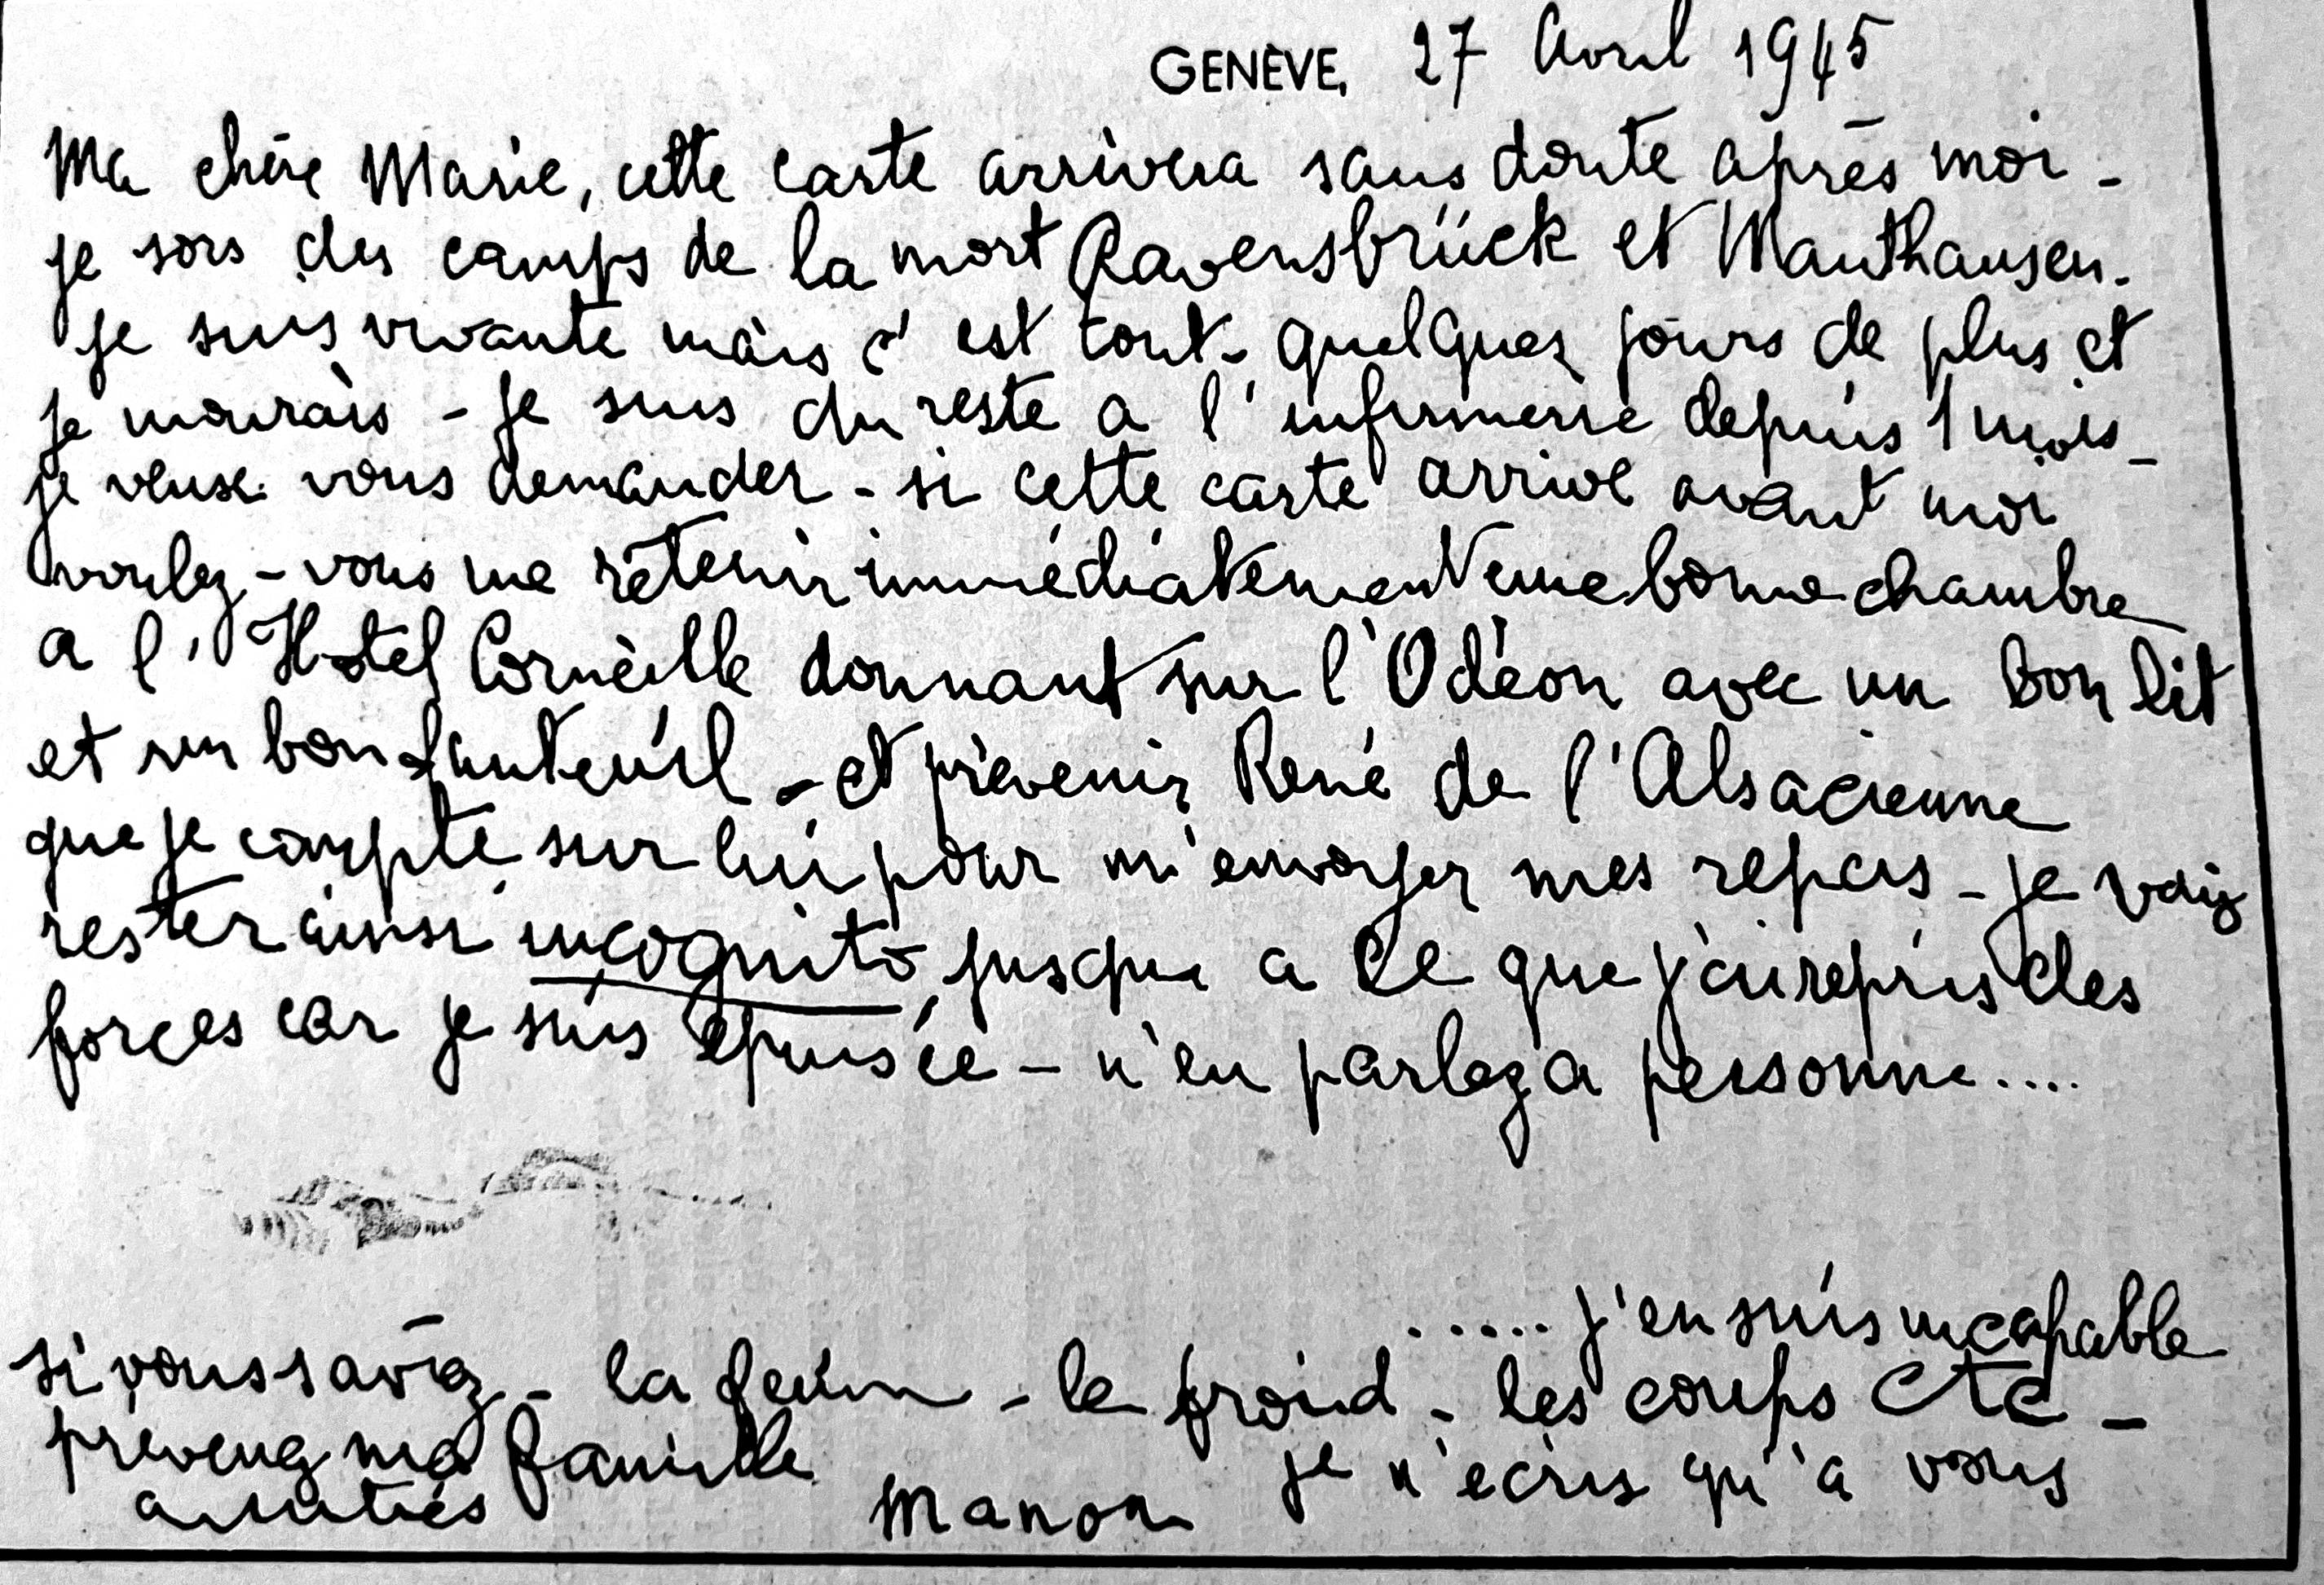 GENÈVE, 27 Avril 1945
Ma chère Marie, cette carte arrivera sans doute après moi -
je sors des camps de la mort Ravensbrück et Mauthausen.
je suis vivante mais c'est tout - quelques jours de plus et
je mourais - je suis du reste a l'infirmerie depuis 1 mois -
je veux vous demander - si cette carte arrive avant moi
voulez-vous me retenir immédiatement une bonne chambre
a l'Hotel Corneille donnant sur l'Odéon avec un bon lit
et un bon fauteuil - et prévenir René de l'Alsacienne
que je compte sur lui pour m'envoyer mes repas - je vais
rester ainsi incognito jusqu'a ce que j'ai repris des
forces car je suis épuisée - n'en parlez a personne....
..... j'en suis incapable
si vous saviez - la faim - le froid - les coups etc -
prévenez ma famille je n'écris qu'à vous
amitiés Manon